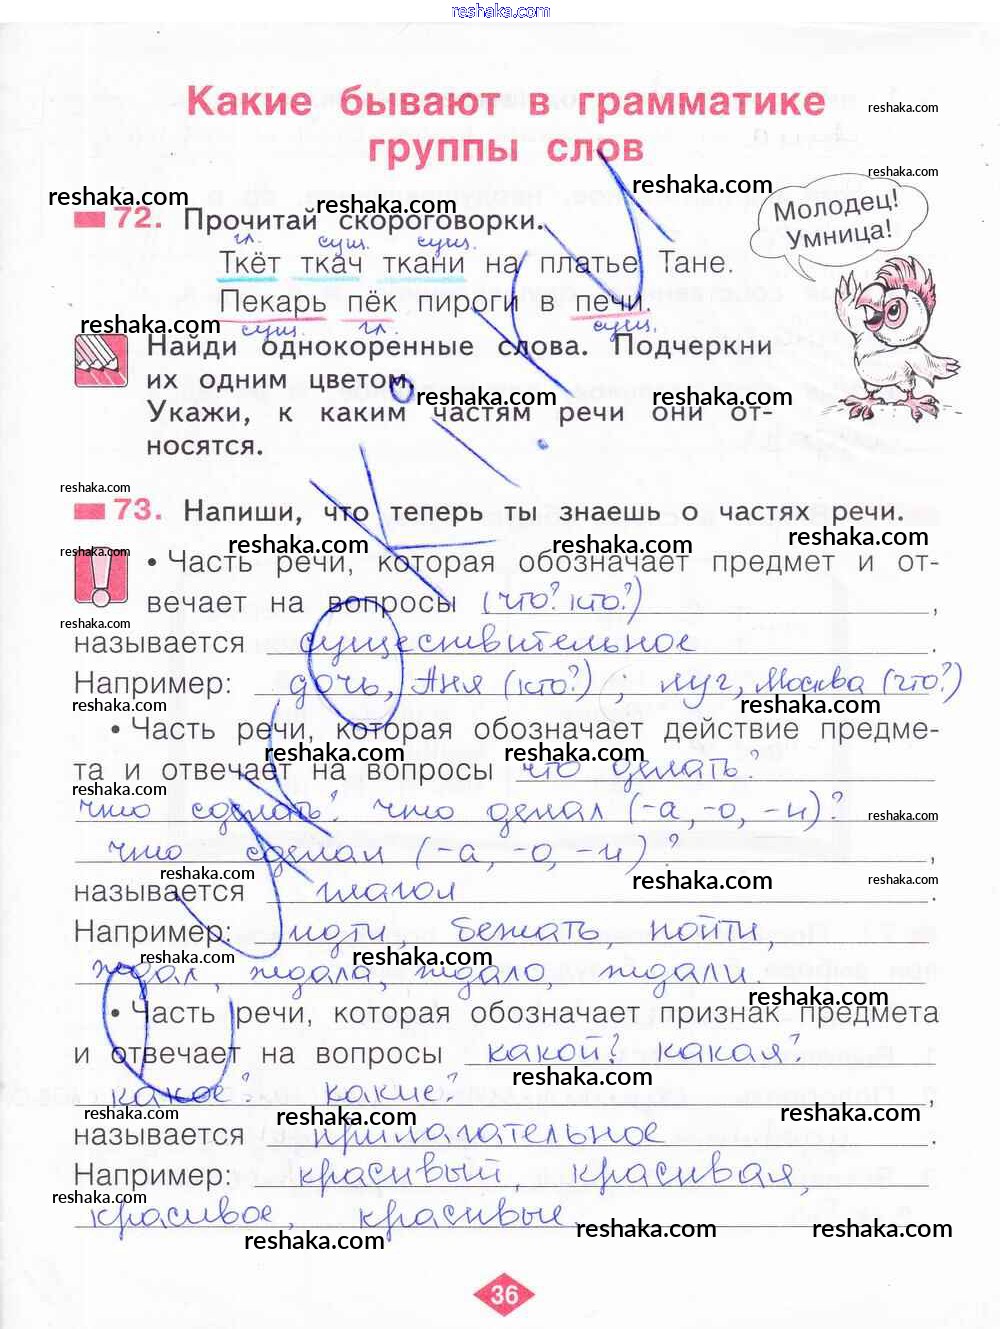 reshaka.com
Какие бывают в грамматике
группы слов
reshaka.com
reshaka.com
reshaka.com
reshaka.com
reshaka.com
Молодец!
Умница!
72. Прочитай скороговорки.
гл. сущ. сущ.
Ткёт ткач ткани на платье Тане.
Пекарь пёк пироги в печи.
reshaka.com
сущ. гл. сущ.
Найди однокоренные слова. Подчеркни
их одним цветом.
reshaka.com reshaka.com
Укажи, к каким частям речи они от-
носятся.
reshaka.com
73. Напиши, что теперь ты знаешь о частях речи.
reshaka.com reshaka.com reshaka.com
reshaka.com
• Часть речи, которая обозначает предмет и от-
вечает на вопросы (что? кто?) ,
reshaka.com
называется существительное .
Например: дочь, Аня (кто?) ; луг, Москва (что?)
reshaka.com reshaka.com
• Часть речи, которая обозначает действие предме-
reshaka.com reshaka.com
та и отвечает на вопросы что делать?
reshaka.com
что сделать? что делал (-а, -о, -и)?
reshaka.com
что сделал (-а, -о, -и)? ,
reshaka.com reshaka.com reshaka.com
называется глагол .
Например: идти, бежать, пойти,
reshaka.com reshaka.com
ждал, ждала, ждало, ждали.
reshaka.com
• Часть речи, которая обозначает признак предмета
и отвечает на вопросы какой? какая?
reshaka.com
какое? какие? ,
reshaka.com reshaka.com reshaka.com
называется прилагательное .
Например: красивый, красивая,
reshaka.com
красивое, красивые.
reshaka.com reshaka.com reshaka.com
36